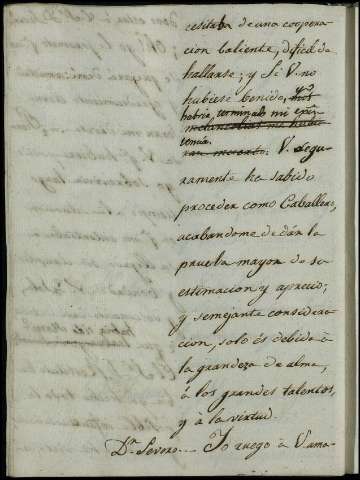 cesitaba de una coopera-
cion baliente, dificil de
hallarse; y si V. no
hubiese benido, yo
habria terminado mi exis-
melancolias me hubie-
tencia.
ran muerto. V. segu-
ramente ha sabido
proceder como Caballero,
acabandome de dár la
prueba mayor de su
estimacion y aprecio;
y semejante considera-
cion, solo és debida à
la grandeza de alma,
á los grandes talentos,
y à la virtud.
Dn. Severo... Yo ruego à V. ama-